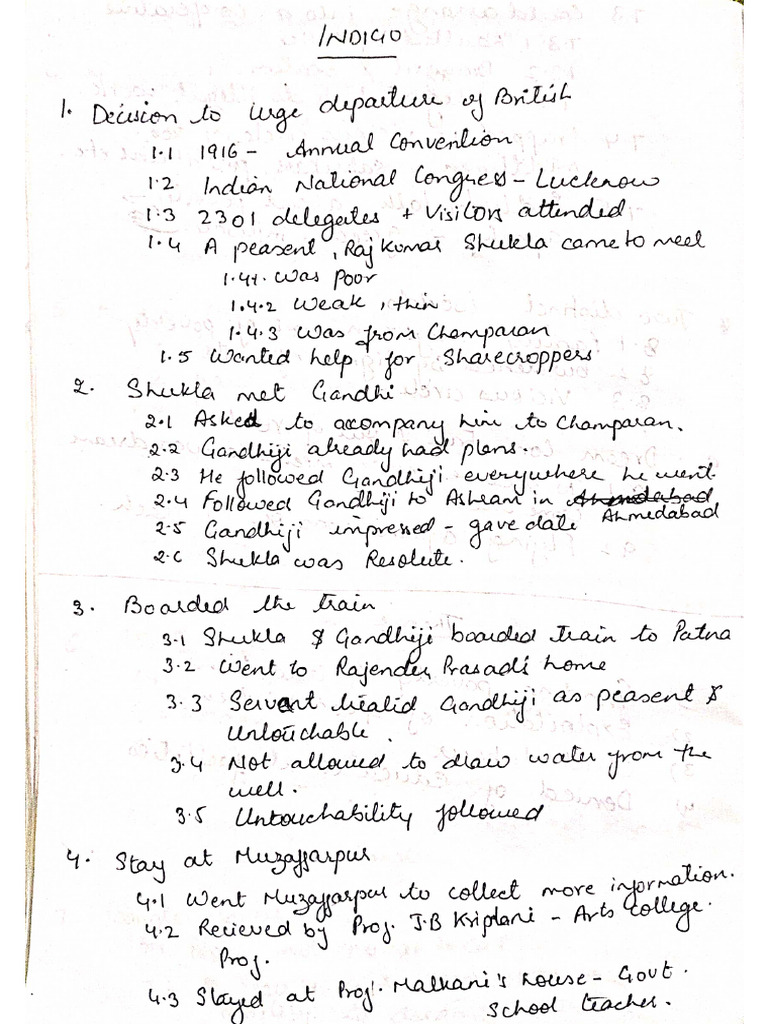 INDIGO
1. Decision to urge departure of British
1.1 1916 - Annual Convention
1.2 Indian National Congress - Lucknow
1.3 2301 delegates + Visitors attended
1.4 A peasent, Raj Kumar Shukla came to meet
1.4.1. was poor
1.4.2 weak, thin
1.4.3 was from Champaran
1.5 Wanted help for Sharecroppers
2. Shukla met Gandhi
2.1 Asked to accompany him to Champaran.
2.2 Gandhiji already had plans.
2.3 He followed Gandhiji everywhere he went.
2.4 Followed Gandhiji to Ashram in Ahmedabad
2.5 Gandhiji impressed - gave date
2.6 Shukla was Resolute.
3. Boarded the train
3.1 Shukla & Gandhiji boarded train to Patna
3.2 Went to Rajender Prasad's home
3.3 Servant treated Gandhiji as peasent &
Untouchable.
3.4 Not allowed to draw water from the
well.
3.5 Untouchability followed
4. Stay at Muzaffarpur
4.1 Went Muzaffarpur to collect more information.
4.2 Recieved by Prof. J.B Kriplani - Arts college.
Prof.
4.3 Stayed at Prof. Malkani's house - Govt.
School teacher.